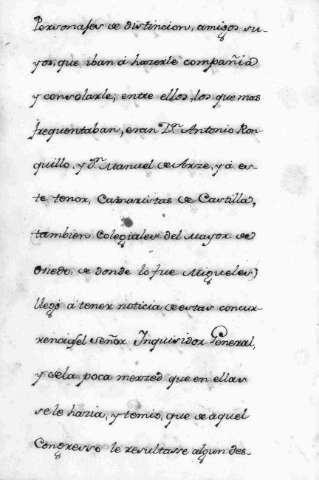 Personajes de distincion, amigos su-
yos, que iban á hazerle compañia
y consolarle; entre ellos, los que mas
frequentaban, eran Dn. Antonio Ron
quillo, y Dn. Manuel de Arze, y á es-
te tenor, Camaristas de Castilla,
tambien Colegiales del mayor de
Oviedo, de donde lo fue Miguelez)
llegó á tener noticia de estas concur-
rencias el señor Inquisidor General,
y de la poca merzed que en ellas
se le hazia, y temió, que de aquel
Congresso le resultasse algun des-